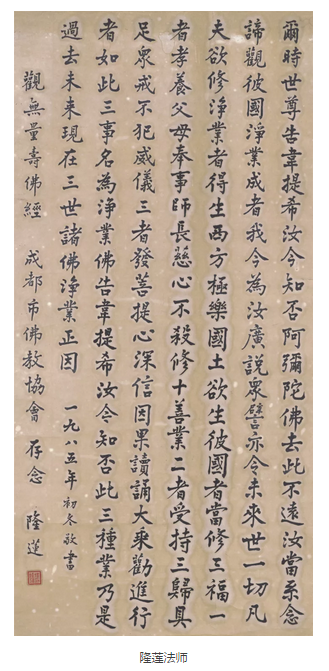 爾時世尊告韋提希汝今知否阿彌陀佛去此不遠汝當系念
諦觀彼國淨業成者我今為汝廣說眾譬亦令未來世一切凡
夫欲修淨業者得生西方極樂國土欲生彼國者當修三福一
者孝養父母奉事師長慈心不殺修十善業二者受持三歸具
足眾戒不犯威儀三者發菩提心深信因果讀誦大乘勸進行
者如此三事名為淨業佛告韋提希汝今知否此三種業乃是
過去未來現在三世諸佛淨業正因 一九八五年初冬敬書
觀無量壽佛經 成都市佛教協會存念 隆蓮
隆莲法师